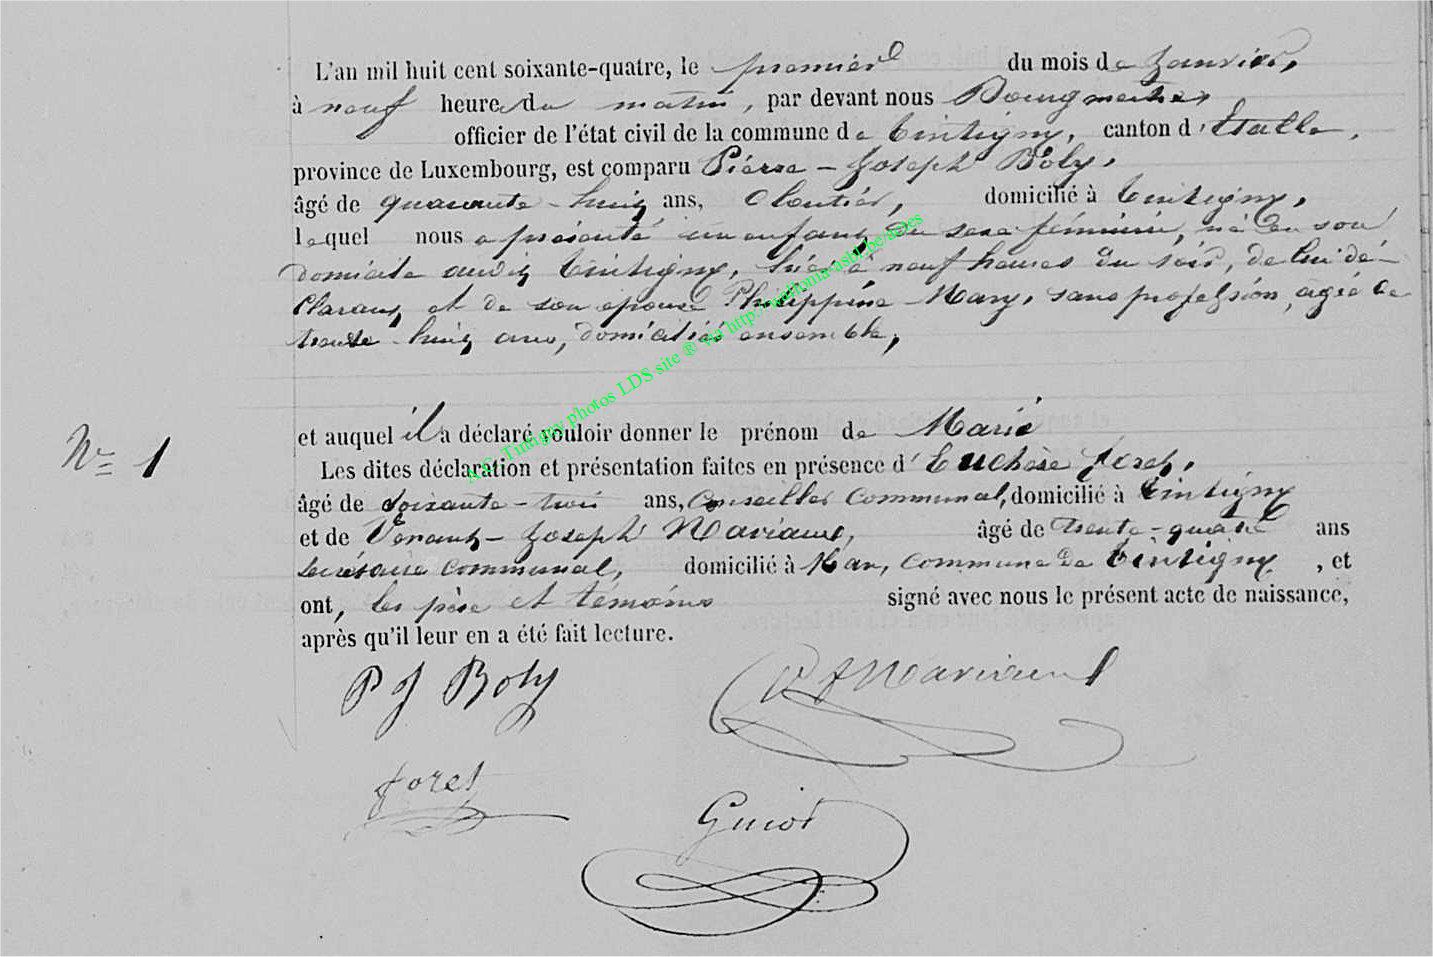 L'an mil huit cent soixante-quatre, le premier du mois de Janvier,
à neuf heures du matin, par devant nous Bourgmestre
officier de l'état civil de la commune de Tintigny, canton d'Etalle,
province de Luxembourg, est comparu Pierre-Joseph Boly,
âgé de quarante-huit ans, Cloutier, domicilié à Tintigny,
lequel nous a présenté un enfant du sexe féminin, né en son
domicile audit Tintigny, hier à neuf heures du soir, de lui dé-
clarant et de son épouse Philippine Mary, sans profession, agée de
trente-huit ans, domiciliés ensemble,
et auquel il a déclaré vouloir donner le prénom de Marie
Nº 1
Les dites déclaration et présentation faites en présence d'Euchère foret,
âgé de soixante-trois ans, Conseiller Communal, domicilié à Tintigny
et de Venant-Joseph Mariaux, âgé de trente-quatre ans
secrétaire Communal, domicilié à Han, Commune de Tintigny, et
ont, les père et témoins signé avec nous le présent acte de naissance,
après qu'il leur en a été fait lecture.
P J Boly
foret
Guiot
A.C. Tintigny photos LDS site ® via http://wallonia-asbl.be/actes